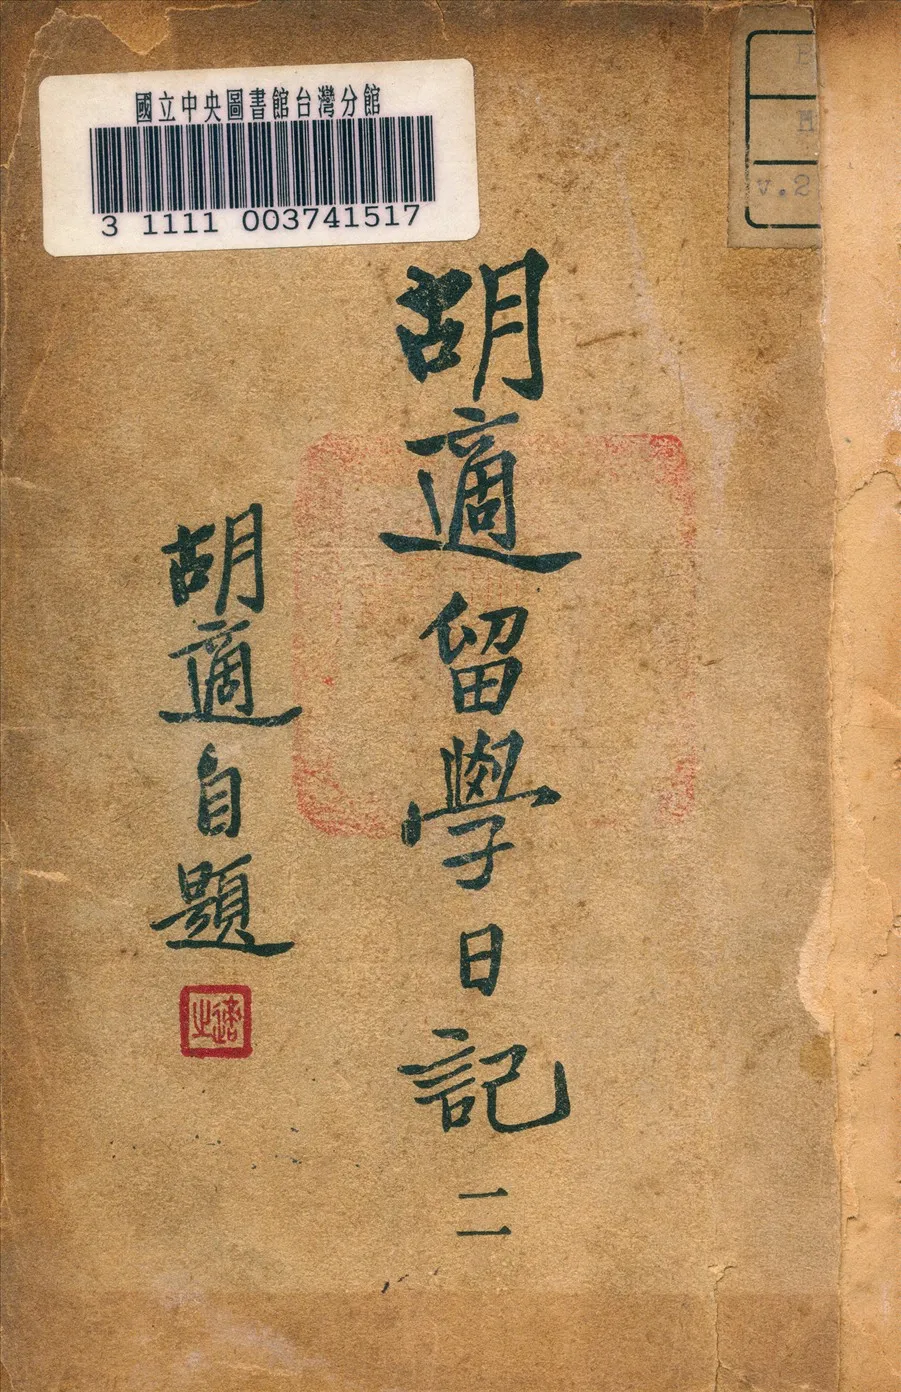 國立中央圖書館台灣分館
3 1111 003741517
v.2
胡適留學日記 二
胡適自題
適之